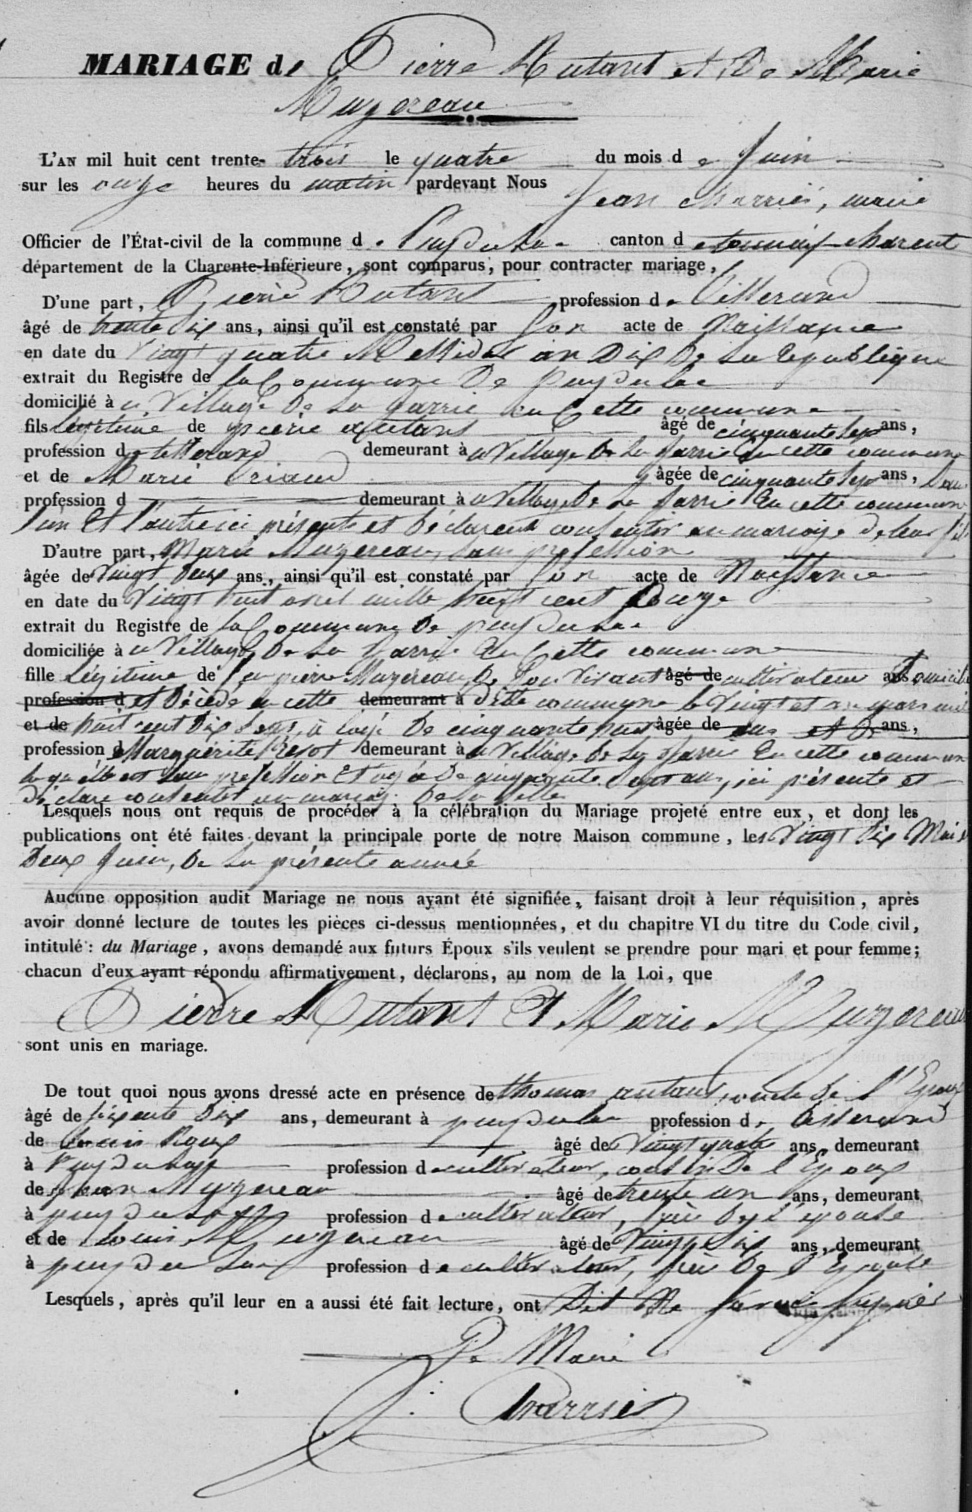 MARIAGE de Pierre Autant et De Marie
Muzereau
L'AN mil huit cent trente trois le quatre du mois de Juin
sur les onze heures du matin pardevant Nous
Jean Charrier, maire
Officier de l'État-civil de la commune de Puydulac canton de tonnay charente
département de la Charente-Inférieure, sont comparus, pour contracter mariage,
D'une part, Pierre Autant profession de tisserand
âgé de trente ans, ainsi qu'il est constaté par son acte de Naissance
en date du Vingt quatre Messidor an Dix De la republique
extrait du Registre de la Commune De puydulac
domicilié à u Village De La Jarrie en Cette commune
fils légitime de pierre autant âgé de cinquante sept ans,
profession de tisserand demeurant à u Village De La Jarrie en cette commune
et de Marie âgée de cinquante sept ans,
profession d demeurant à u Village De La Jarrie En cette commune
l'un et l'autre ici présents et Déclarent consentir au mariage de leur fils
D'autre part, Marie Muzereau, sans profession
âgée de Vingt Deux ans, ainsi qu'il est constaté par son acte de Naissance
en date du Vingt huit mille huit cent
extrait du Registre de La Commune De puydulac
domiciliée à u Village De La Jarrie En Cette commune
fille Légitime de feu pierre Muzereau, De Son Vivant âgé de cultivateur ans
profession d et Décédé en cette demeurant à Dite commune le Vingt et un mars mil
et de huit cent Dix Sept, à l'age De cinquante huit âgée de ans et De ans,
profession d Marguerite demeurant à u Village De La Jarrie En cette commune
laquelle est sans profession Et agée De ans, ici présente et
Déclare consentir au mariage De sa fille
Lesquels nous ont requis de procéder à la célébration du Mariage projeté entre eux, et dont les
publications ont été faites devant la principale porte de notre Maison commune, les Vingt Six Mai &
Deux Juin, De La présente année
Aucune opposition audit Mariage ne nous ayant été signifiée, faisant droit à leur réquisition, après
avoir donné lecture de toutes les pièces ci-dessus mentionnées, et du chapitre VI du titre du Code civil,
intitulé : du Mariage, avons demandé aux futurs Époux s'ils veulent se prendre pour mari et pour femme;
chacun d'eux ayant répondu affirmativement, déclarons, au nom de la Loi, que
Pierre Autant Et Marie Muzereau
sont unis en mariage.
De tout quoi nous avons dressé acte en présence de thomas autant, oncle de l'Epoux
âgé de ans, demeurant à puydulac profession de tisserand
de Louis âgé de Vingt quatre ans, demeurant
à Puydulac profession de cultivateur, cousin De l'Epoux
de Jean Muzereau âgé de trente un ans, demeurant
à puydulac profession de cultivateur, frère De l'épouse
et de Louis Muzereau âgé de Vingt Six ans, demeurant
à puydu Lac profession de cultivateur, frère De l'Epouse
Lesquels, après qu'il leur en a aussi été fait lecture, ont Dit Ne Savoir Signer
Le Maire
Charrier